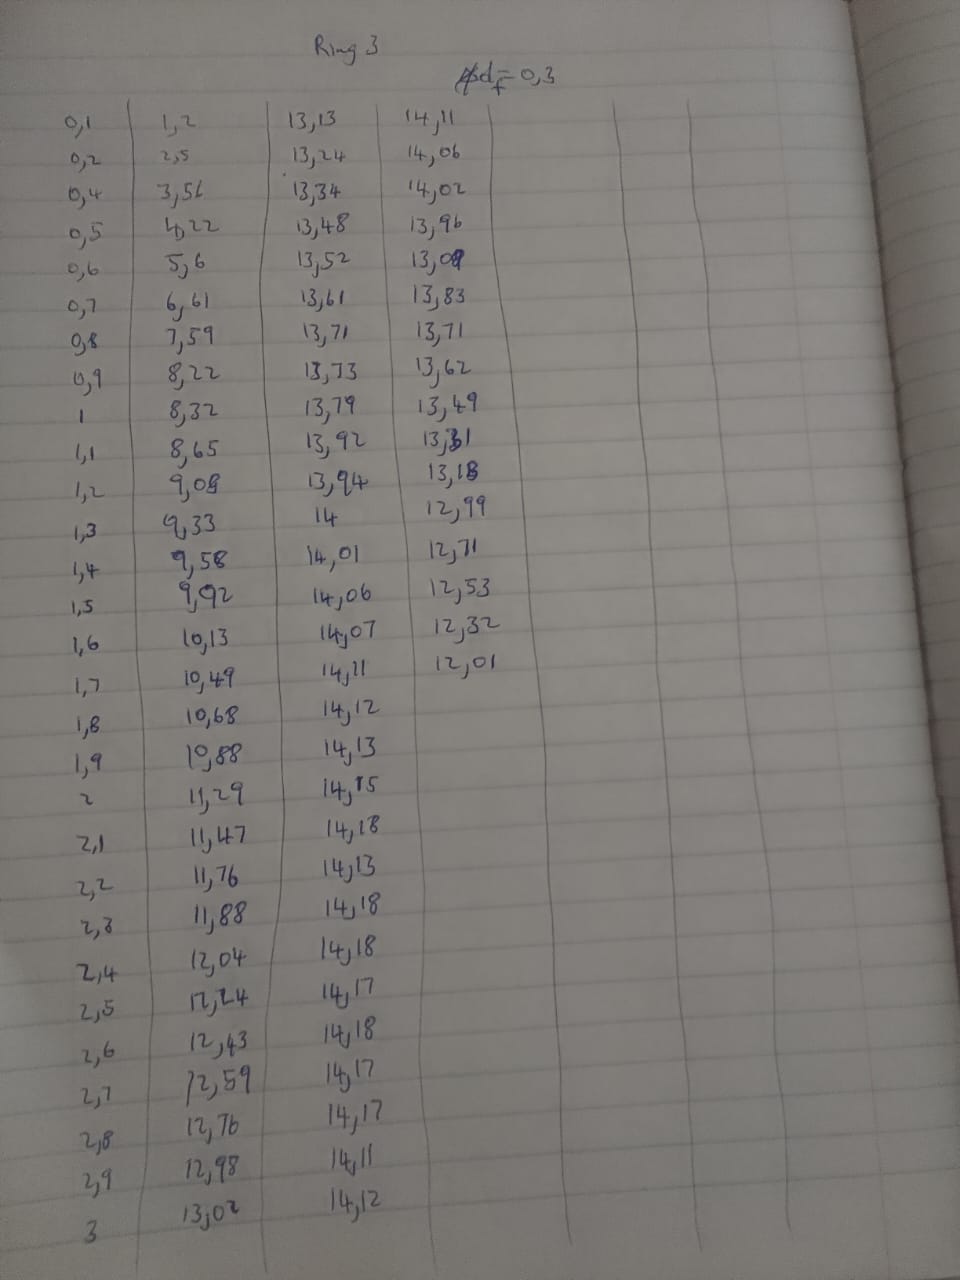 Ring 3
pd_f = 0,3
0,1 1,2 13,13 14,11
0,2 2,5 13,24 14,06
0,4 3,56 13,34 14,02
0,5 4,22 13,48 13,96
0,6 5,6 13,52
0,7 6,61 13,61 13,83
0,8 7,59 13,71 13,71
0,9 8,22 13,73 13,62
1 8,32 13,79 13,49
1,1 8,65 13,92 13,31
1,2 9,08 13,94 13,18
1,3 9,33 14 12,99
1,4 9,58 14,01 12,71
1,5 9,92 14,06 12,53
1,6 10,13 14,07 12,32
1,7 10,49 14,11 12,01
1,8 10,68 14,12
1,9 10,88 14,13
2 11,29 14,15
2,1 11,47 14,18
2,2 11,76 14,13
2,3 11,88 14,18
2,4 12,04 14,18
2,5 12,24 14,17
2,6 12,43 14,18
2,7 12,59 14,17
2,8 12,76 14,17
2,9 12,98 14,11
3 13,02 14,12